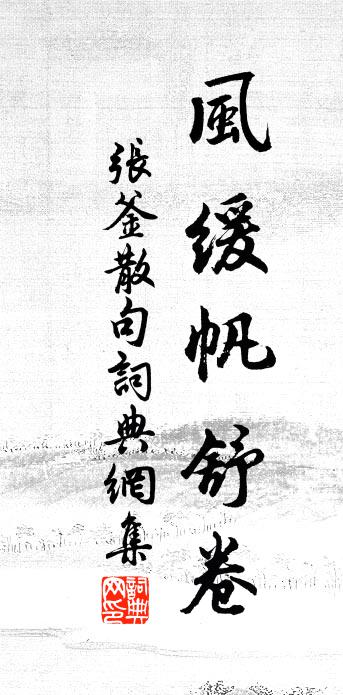 風緩帆舒卷
張釜散句詞典網集
詞典